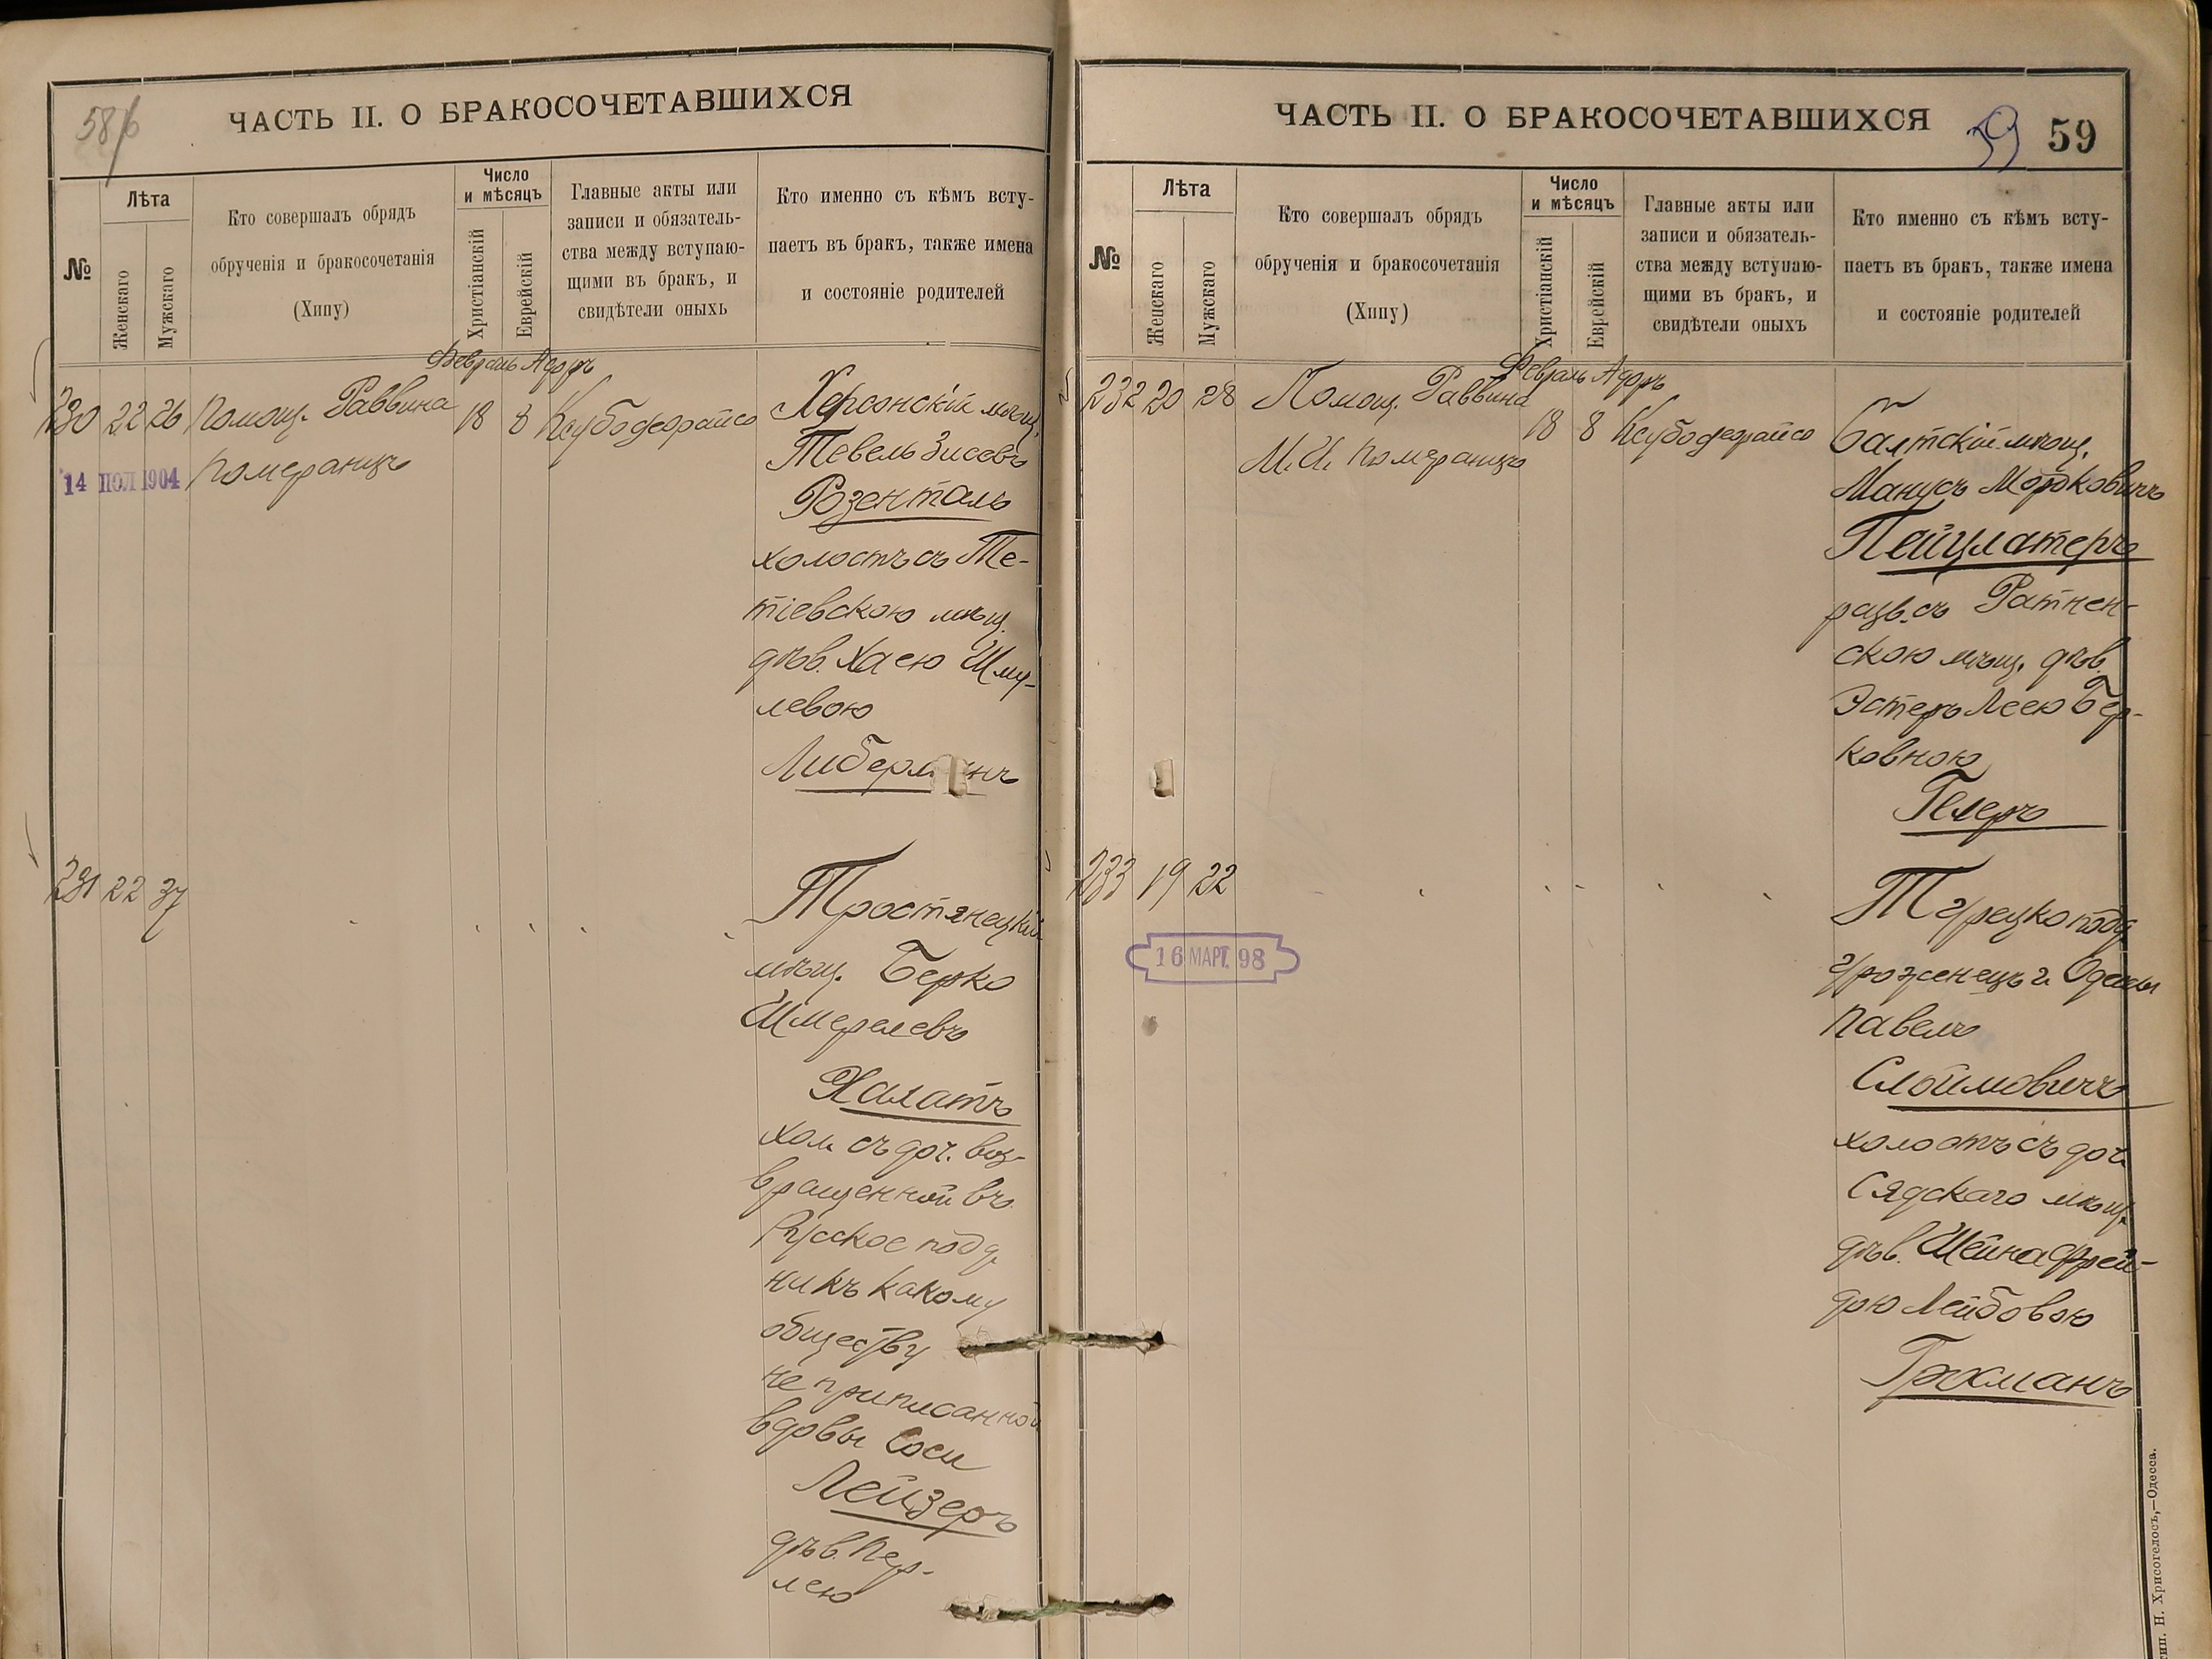 58/б
ЧАСТЬ II. О БРАКОСОЧЕТАВШИХСЯ
№
Лѣта
Женскаго
Мужскаго
Кто совершалъ обрядъ
обрученія и бракосочетанія
(Хипу)
Число
и мѣсяцъ
Христіанскій
Еврейскій
Главные акты или
записи и обязатель-
ства между вступаю-
щими въ бракъ, и
свидѣтели оныхъ
Кто именно съ кѣмъ всту-
паетъ въ бракъ, также имена
и состояніе родителей
Февраль Адаръ
230 22 26 Помощ. Раввина 18 8 Ксубодеорайсо
Померанцъ
14 ІЮЛ 1904
Херсонскій мѣщ.
Тевель Зисевъ
Розенталь
холостъ съ Те-
тіевскою мѣщ.
дѣв. Хаею Шму-
левою
Либерманъ
231 22 37
Тростянецкій
мѣщ. Берко
Шмерелевъ
Халатъ
хол. съ доч. воз-
вращенной въ
Русское подд.
ни къ какому
обществу
не приписанной
вдовы Соси
Лейзеръ
дѣв. Пер-
лею
ЧАСТЬ II. О БРАКОСОЧЕТАВШИХСЯ
59 59
№
Лѣта
Женскаго
Мужскаго
Кто совершалъ обрядъ
обрученія и бракосочетанія
(Хипу)
Число
и мѣсяцъ
Христіанскій
Еврейскій
Главные акты или
записи и обязатель-
ства между вступаю-
щими въ бракъ, и
свидѣтели оныхъ
Кто именно съ кѣмъ всту-
паетъ въ бракъ, также имена
и состояніе родителей
Февраль Адаръ
232 20 28 Помощ. Раввина 18 8 Ксубодеорайсо
М. И. Померанцъ
Балтскій мѣщ.
Манусъ Мордковичъ
Пейцлатеръ
разв. съ Ратнен-
скою мѣщ. дѣв.
Эстеръ Леею Бер-
ковною
Гелеръ
233 19 22
16 МАРТ. 98
Турецкоподд.
уроженецъ г. Одессы
Павелъ
Слоимовичъ
холостъ съ доч.
Сядскаго мѣщ.
дѣв. Шейна Фрей-
дою Лейбовою
Грохманъ
тип. Н. Хрисогелосъ,—Одесса.